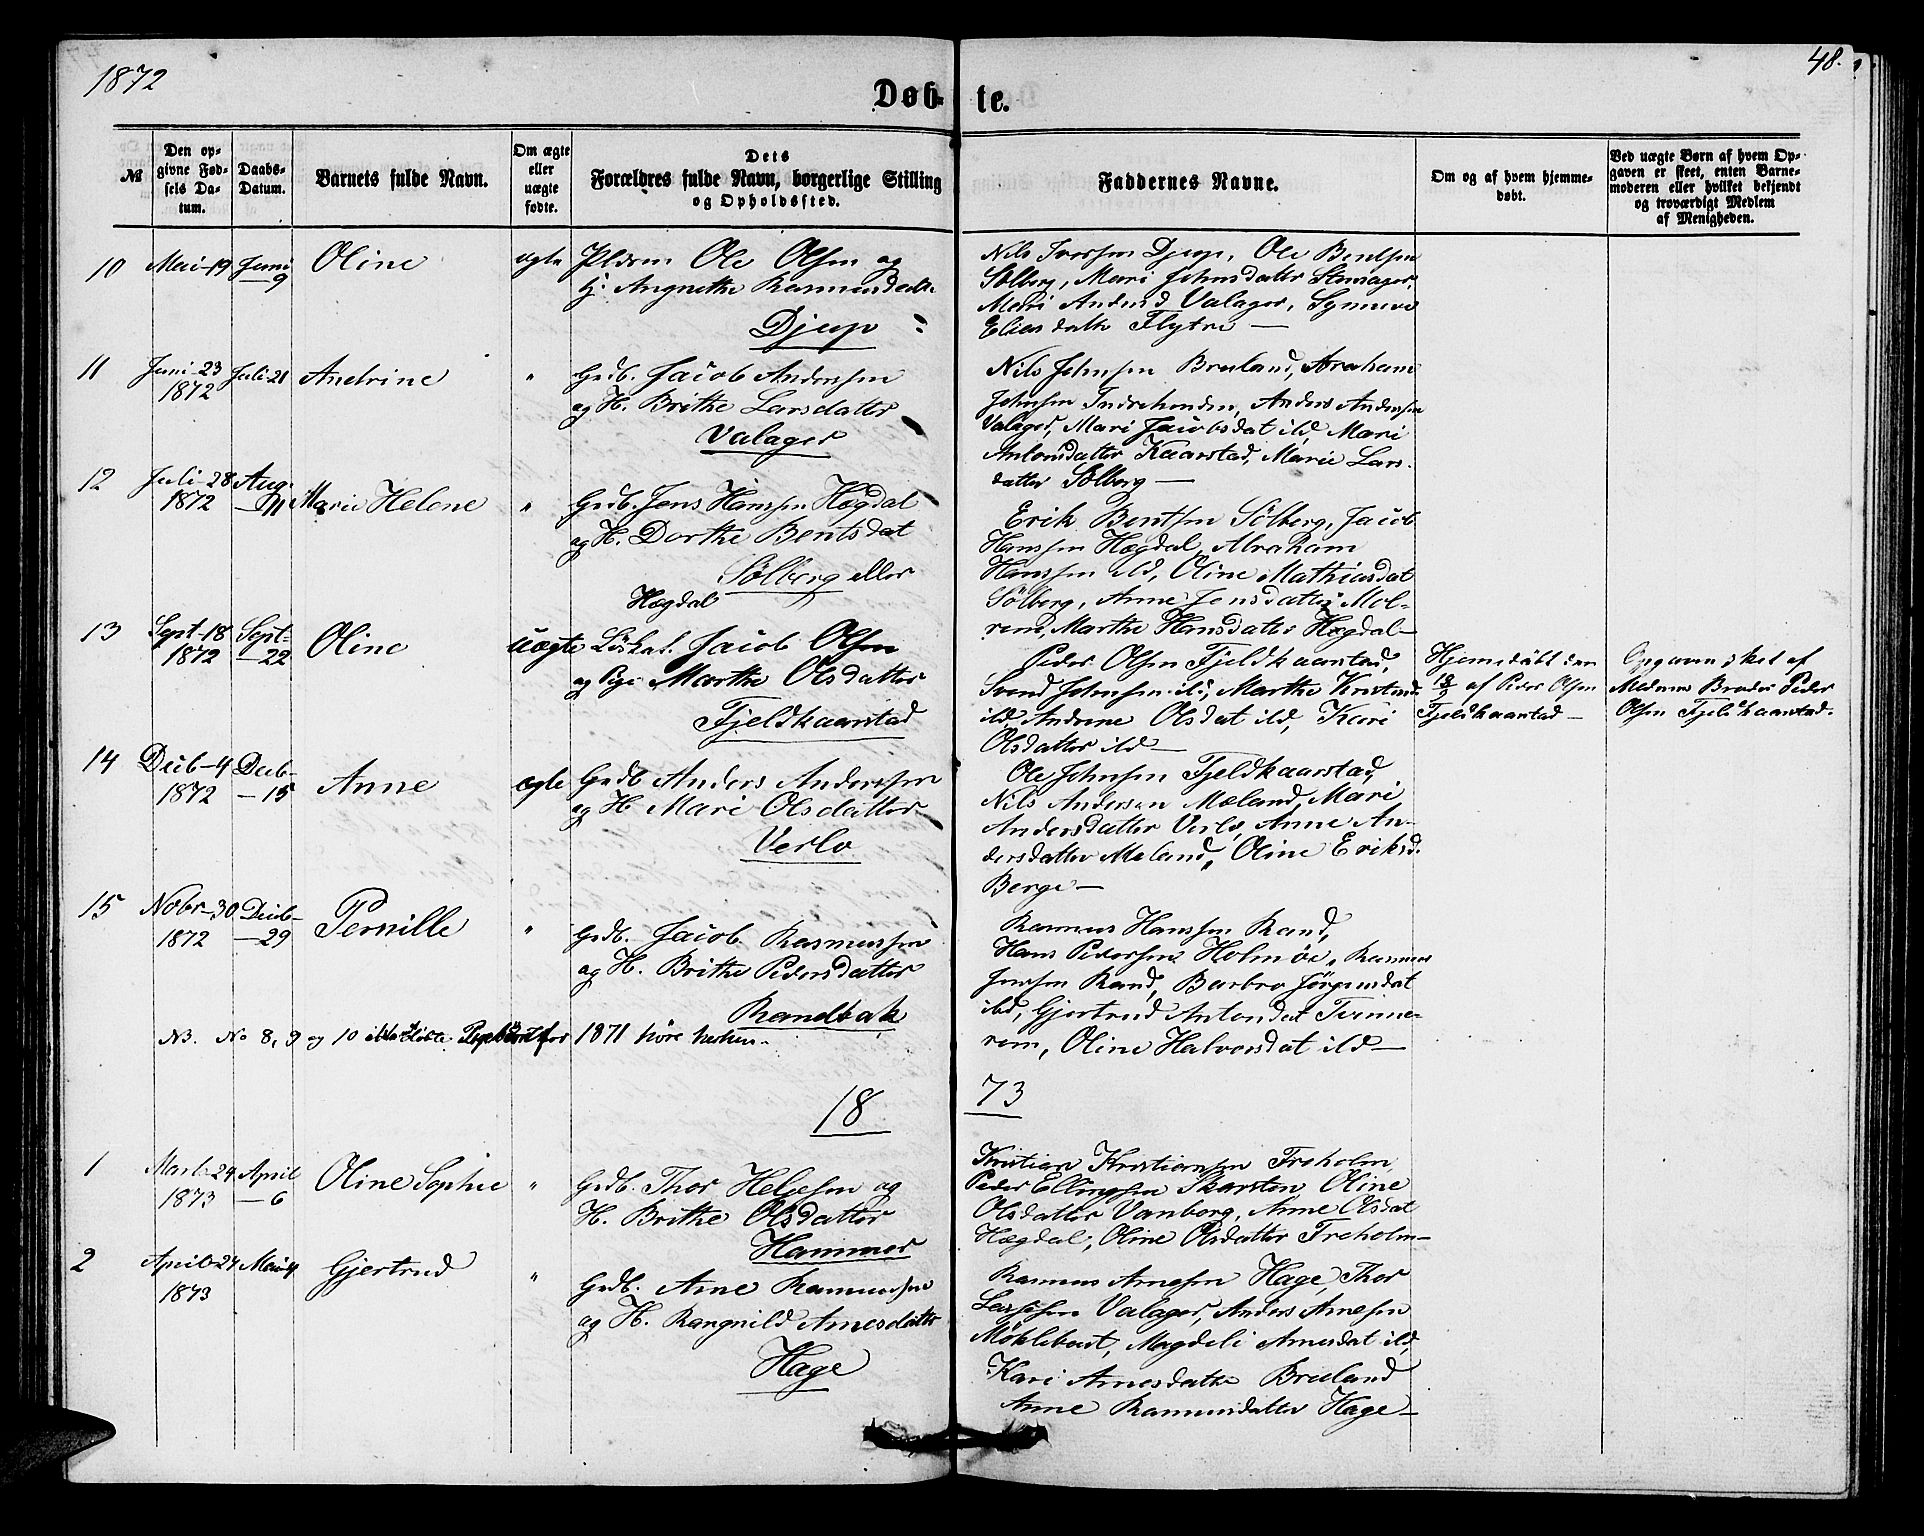 1872
48.
Døb-
te.
№
Den op-
givne Fød-
sels Da-
tum.
Daabs-
Datum.
Barnets fulde Navn.
Om ægte
eller
uægte
fødte.
Dets
Forældres fulde Navn, borgerlige Stilling
og Opholdssted.
Faddernes Navne.
Om og af hvem hjemme-
døbt.
Ved uægte Børn af hvem Op-
gaven er skeet, enten Barne-
moderen eller hvilket bekjendt
og troværdigt Medlem
af Menigheden.
10 Mai 19 Juni
9
Oline
ægte
Ole Olsen og
Angnethe Rasmusdatt.
Djup
Nils Iversen Djup, Ole Bentsen
Sölberg, Mari Johnsdatter
Mari Andersd Valager, Synneve
Eliasdatter Flytre —
11 Juni 23 Juli 21
1872
Andrine
"
Grdb. Jacob Anderssen
og H. Brithe Larsdatter
Valager
Nils Johnsen Breland, Abraham
Johnsen Indrehenden, Anders Andersen
Valager, Mari Jacobsdat ibd, Mari
Antonsdatter Kaarstad, Marie Lars-
datter Sölberg —
12 Juli 28 Aug.
1872 — 11
Marie Helene
"
Grdb. Jens Hanssen Hægdal
og H. Dorthe Bentsdat
Sölberg eller
Hægdal
Erik Bentsen Sölberg, Jacob
Hanssen Hægdal, Abraham
Hanssen ibd, Oline Mathiasdat
Sölberg, Anne Jensdatter Mol-
rem, Marthe Hansdatter Hægdal —
13 Sept 18 Sept-
1872 — 22
Oline
uægte
Löskal. Jacob Olsen
og Pige Marthe Olsdatter
Fjeldkaarstad
Peder Olsen Fjeldkaarstad,
Svend Johnsen ibd, Marthe Kristensd.
ibd, Andrine Olsdat ibd, Kari
Olsdatter ibd —
Hjemdöbt den
18/9 af Peder Olsen
Fjeldkaarstad —
Opgaven sket af
Moderens Broder Peder
Olsen Fjeldkaarstad.
14 Decb 4 Decb-
1872 — 15
Anne
ægte
Grdb Anders Anderssen
og H Mari Olsdatter
Verlo
Ole Johnsen Fjeldkaarstad,
Nils Andersen Mæland, Mari
Andersdatter Verlo, Anne An-
dersdatter Mæland, Oline Eriksd.
Berge —
15 Nobr 30 Decb-
1872 — 29
Pernille
"
Grdb. Jacob Rasmussen
og H. Brithe Pedersdatter
Randbak
Rasmus Hanssen Rand,
Hans Pedersen Holmöe, Rasmus
Jenssen Rand, Barbro Jörgensdat
ibd, Gjertrud Antonsdat Tvinne-
rem, Oline Halvorsdat ibd —
NB. No 8, 9 og 10 for 1871 höre herhen.
18
73
1 Marts 24 April
1873 — 6
Oline Sophie
"
Grdb. Thor Helgesen og
H. Brithe Olsdatter
Hammer
Kristian Kristianssen Treholm,
Peder Ellingsen Skarsten, Oline
Olsdatter Vanberg, Anne Olsdat
Hægdal, Oline Olsdatter Treholm —
2 April 24 Mai 4
1873
Gjertrud
"
Grdb. Arne Rasmussen
og H. Rangnild Arnesdatter
Hage
Rasmus Arnesen Hage, Thor
Larssen Valager, Anders Arnesen
Möklebust, Magdeli Arnesdat ibd,
Kari Arnesdatter Breland
Anne Rasmusdatter Hage —